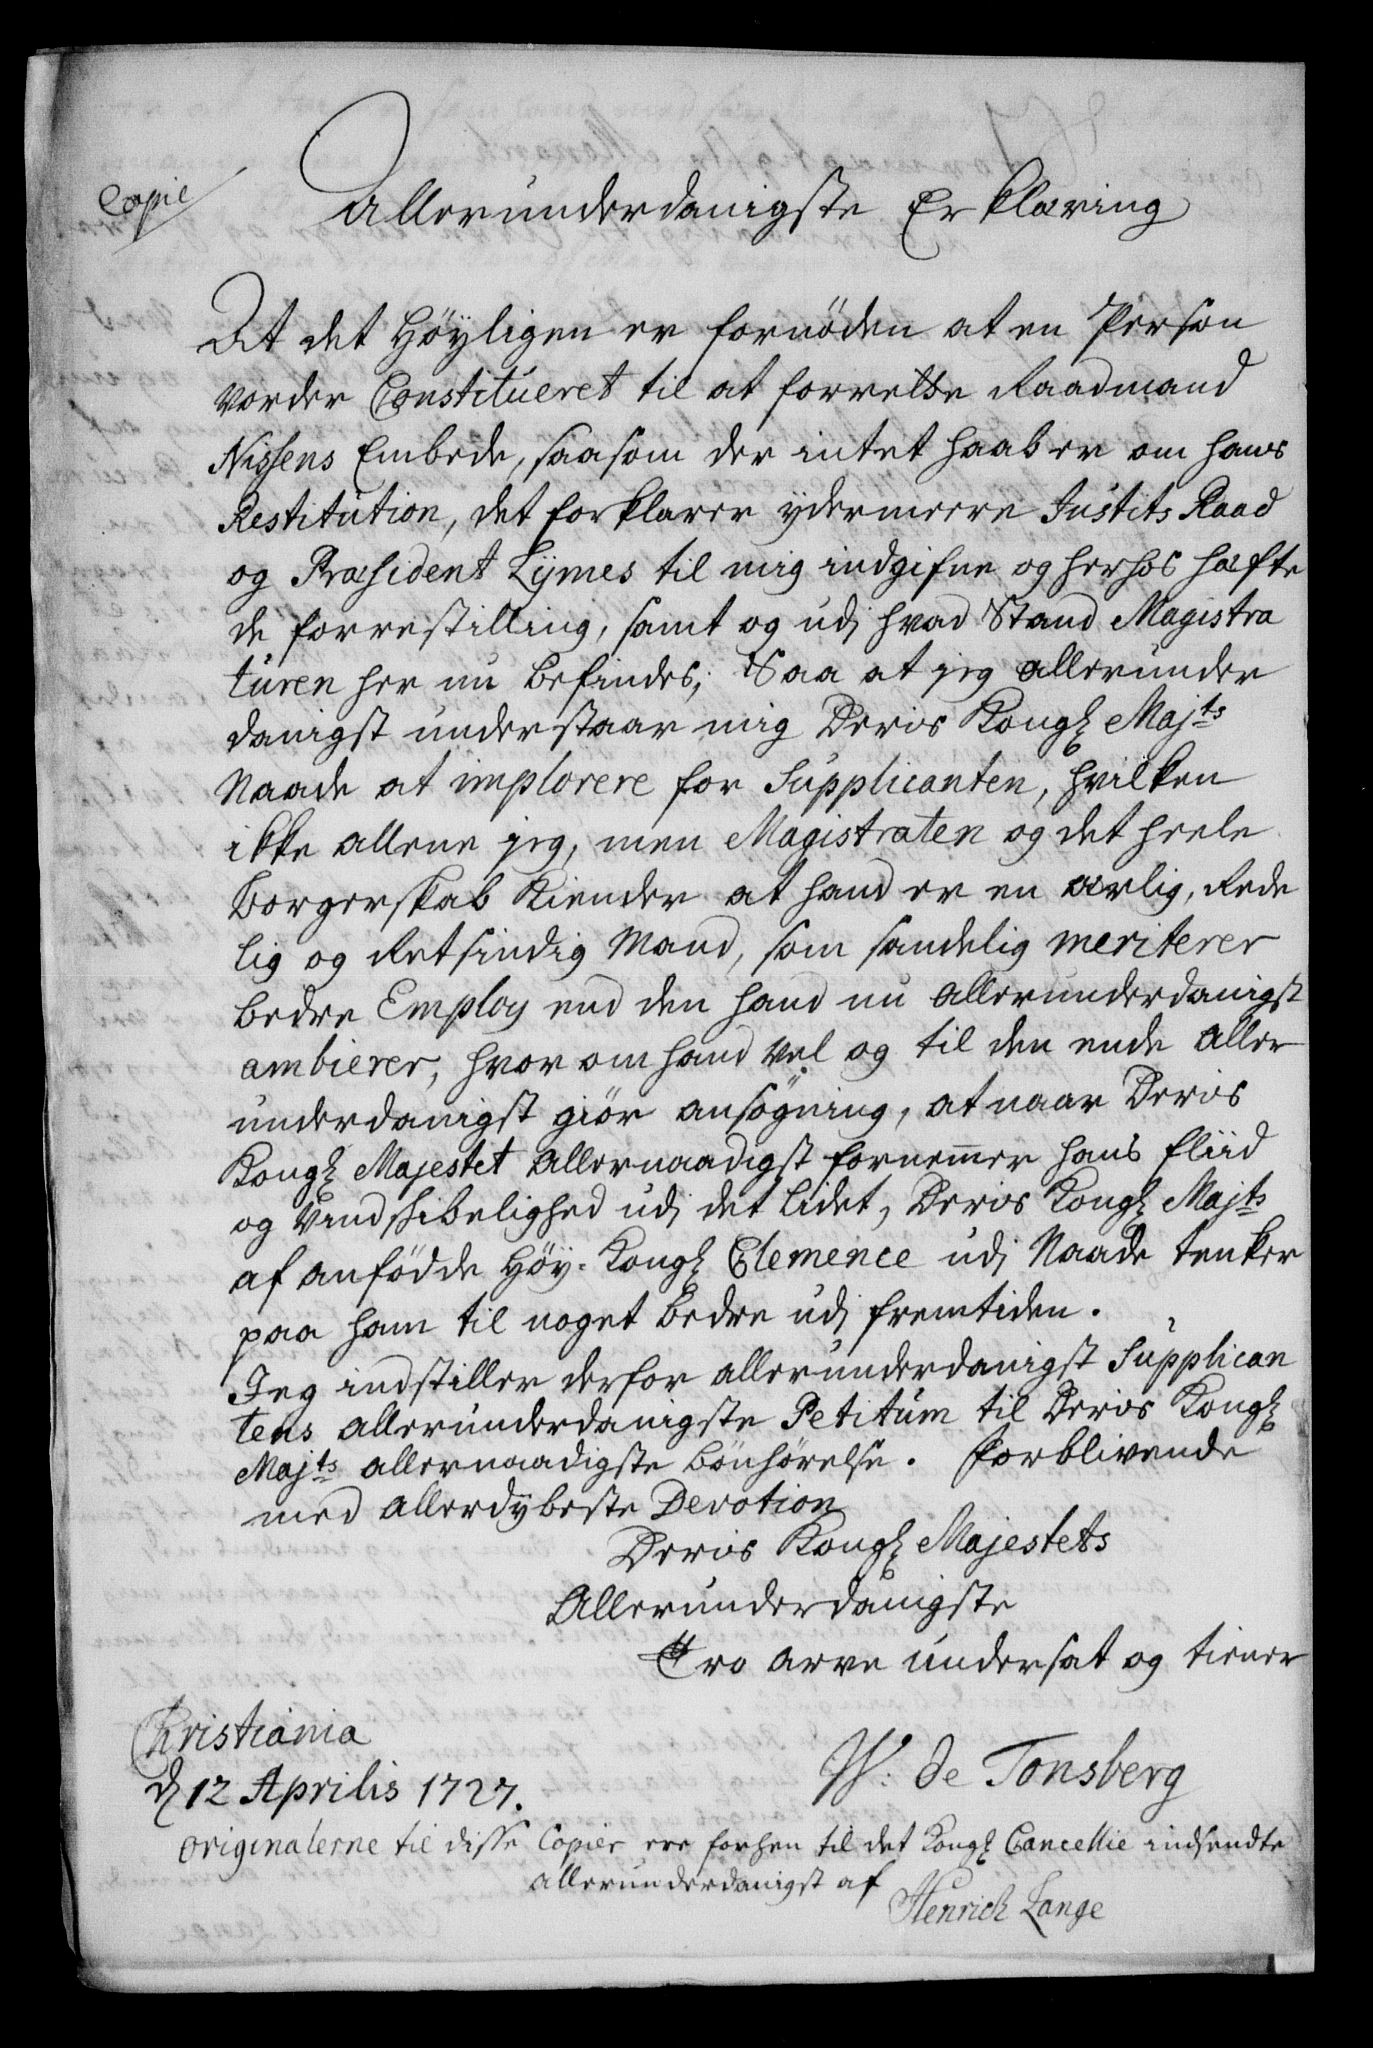 Copie
Allerunderdanigste Erklæring
At det Höyligen er fornöden at en Person
vorder Constitueret til at forrette Raadmand
Nissens Embede, saasom der intet haab er om hans
Restitution, det forklarer ÿdermeere Justits Raad
og Præsident Lÿmes til mig indgifne og herhos hæfte
de forrestilling, samt og udj hvad Stand Magistra
turen her nu befindes; Saa at jeg allerunder
danigst understaar mig Deris Kongl Majts
Naade at implorere for Supplicanten, hvilken
ikke allene jeg, men Magistraten og det heele
Borgerskab Kiender at hand er en ærlig, Rede
lig og Retsindig Mand, som sandelig meriterer
bedre Employ end den hand nu allerunderdanigst
ambierer, hvor om hand vel og til den ende aller
underdanigst giör ansögning, at naar Deris
Kongl Majestet Allernaadigst fornemmer hans fliid
og Vindskibelighed udj det lidet, Deris Kongl Majts
af anfödde Höy-Kongl Clemence udj Naade tenker
paa ham til noget bedre udj fremtiden.
Jeg indstiller derfor allerunderdanigst Supplican
tens allerunderdanigste Petitum til Deris Kongl
Majts allernaadigste bönhörelse. Forblivende
med allerdÿbeste Devotion
Deris Kongl Majestets
Allerunderdanigste
Tro arve undersat og tiener
Christiania
d 12 Aprilis 1727.
W: de Tonsberg
Originalerne til disse Copier ere forhen til det Kongl Cancellie indsendte
allerunderdanigst af
Henrich Lange